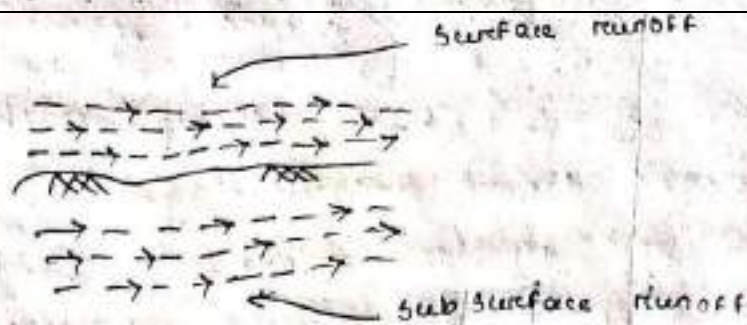 Surface runoff
Sub/surface runoff